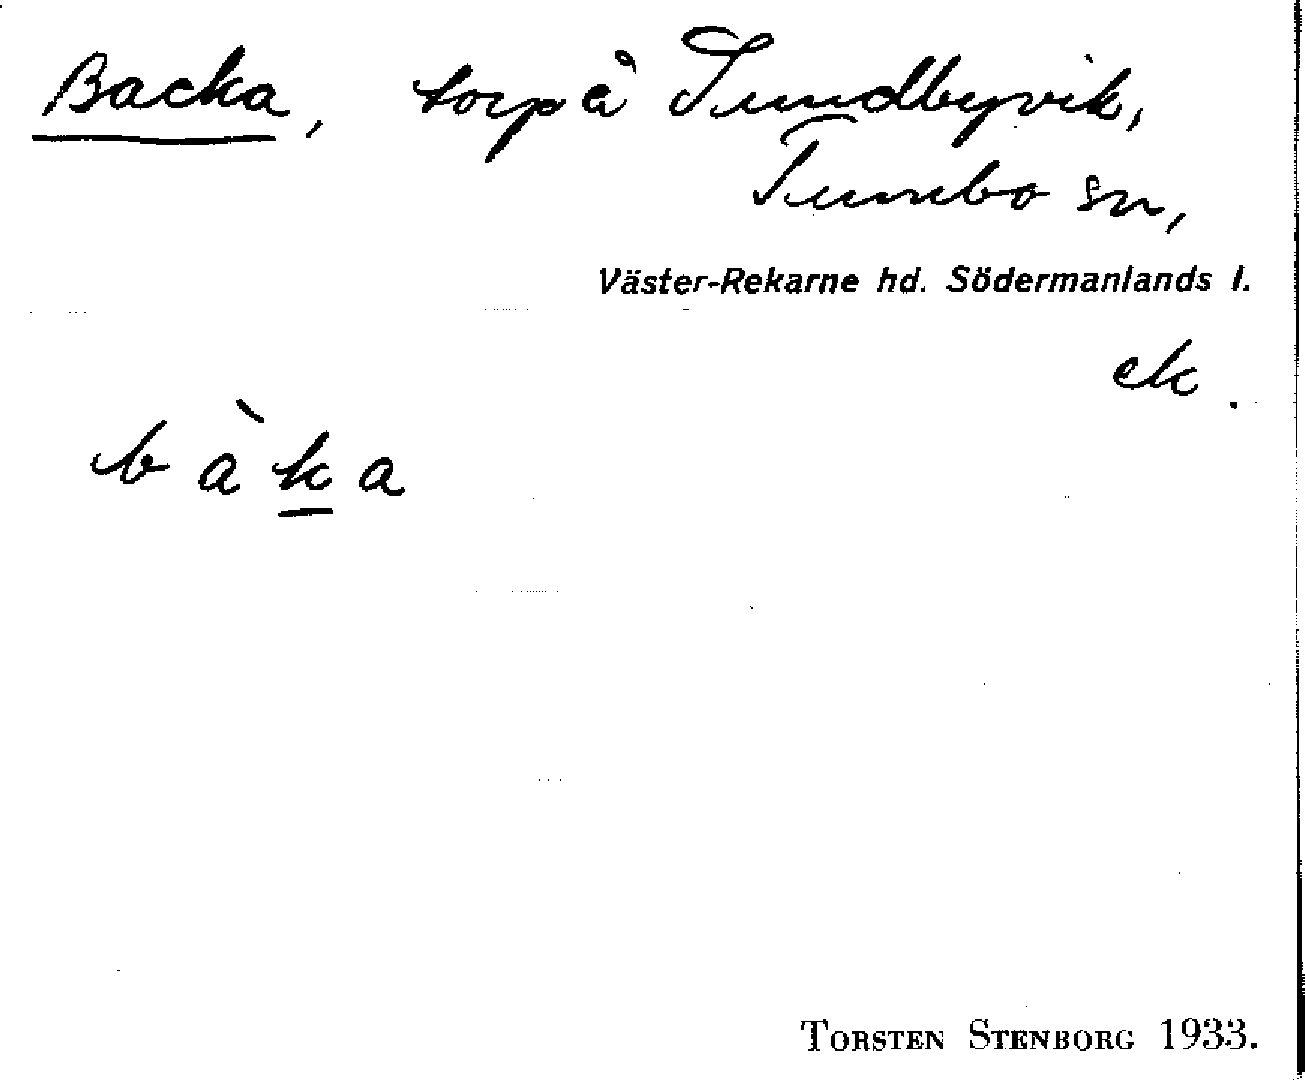 Backa, torp å Sundbyvik,
Tumbo sn,
Väster-Rekarne hd. Södermanlands l.
ek.
bàka
TORSTEN STENBORG 1933.